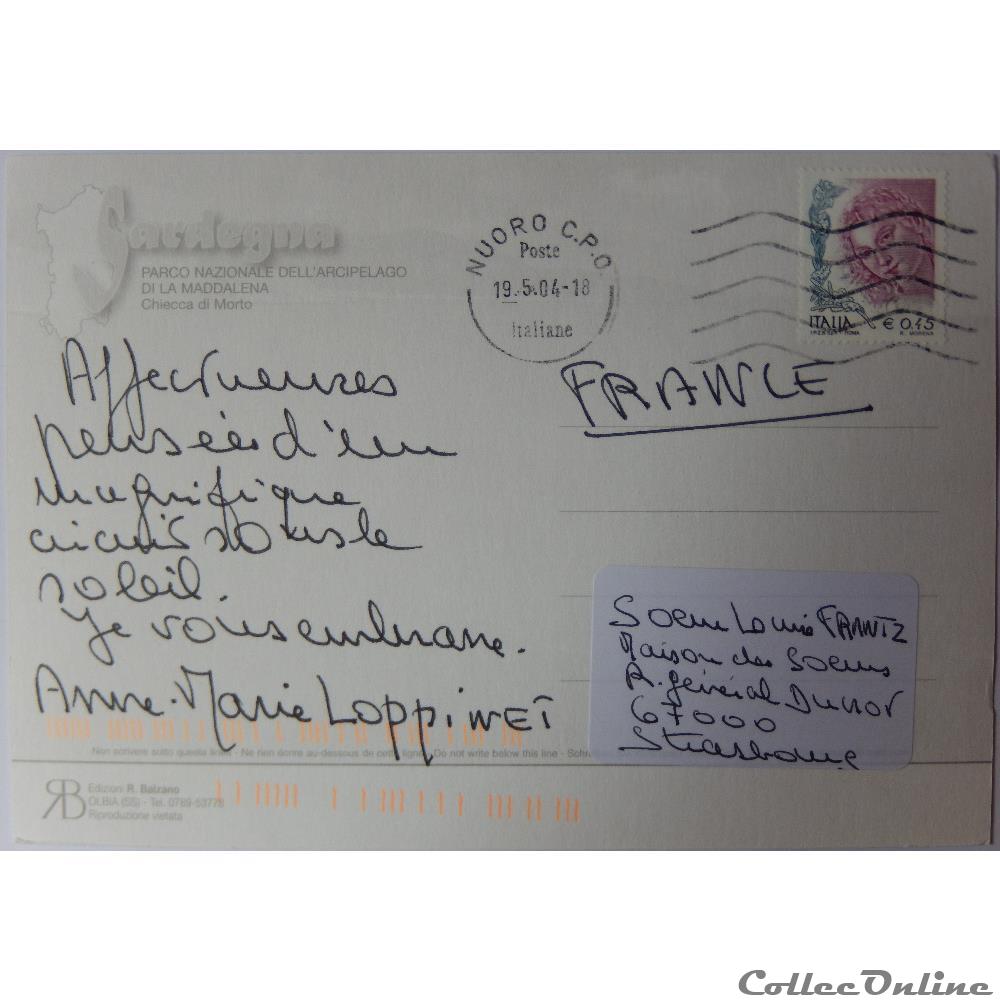 Sardegna
PARCO NAZIONALE DELL'ARCIPELAGO
DI LA MADDALENA
Chiecca di Morto
NUORO C.P.O.
Poste
19.5.04-18
Italiane
ITALIA € 0,45
Affectueuses
pensées d'un
magnifique
circuit sous le
soleil.
Je vous embrasse.
Anne-Marie LOPPINET
FRANCE
Soeur Louis FRANTZ
Maison des Soeurs
R. général Ducrot
67000
Strasbourg
Non scrivere sotto questa linea - Ne rien écrire au-dessous de cette ligne - Do not write below this line - Schr
RB
Edizioni R. Balzano
OLBIA (SS) - Tel. 0789-53778
Riproduzione vietata
CollecOnline